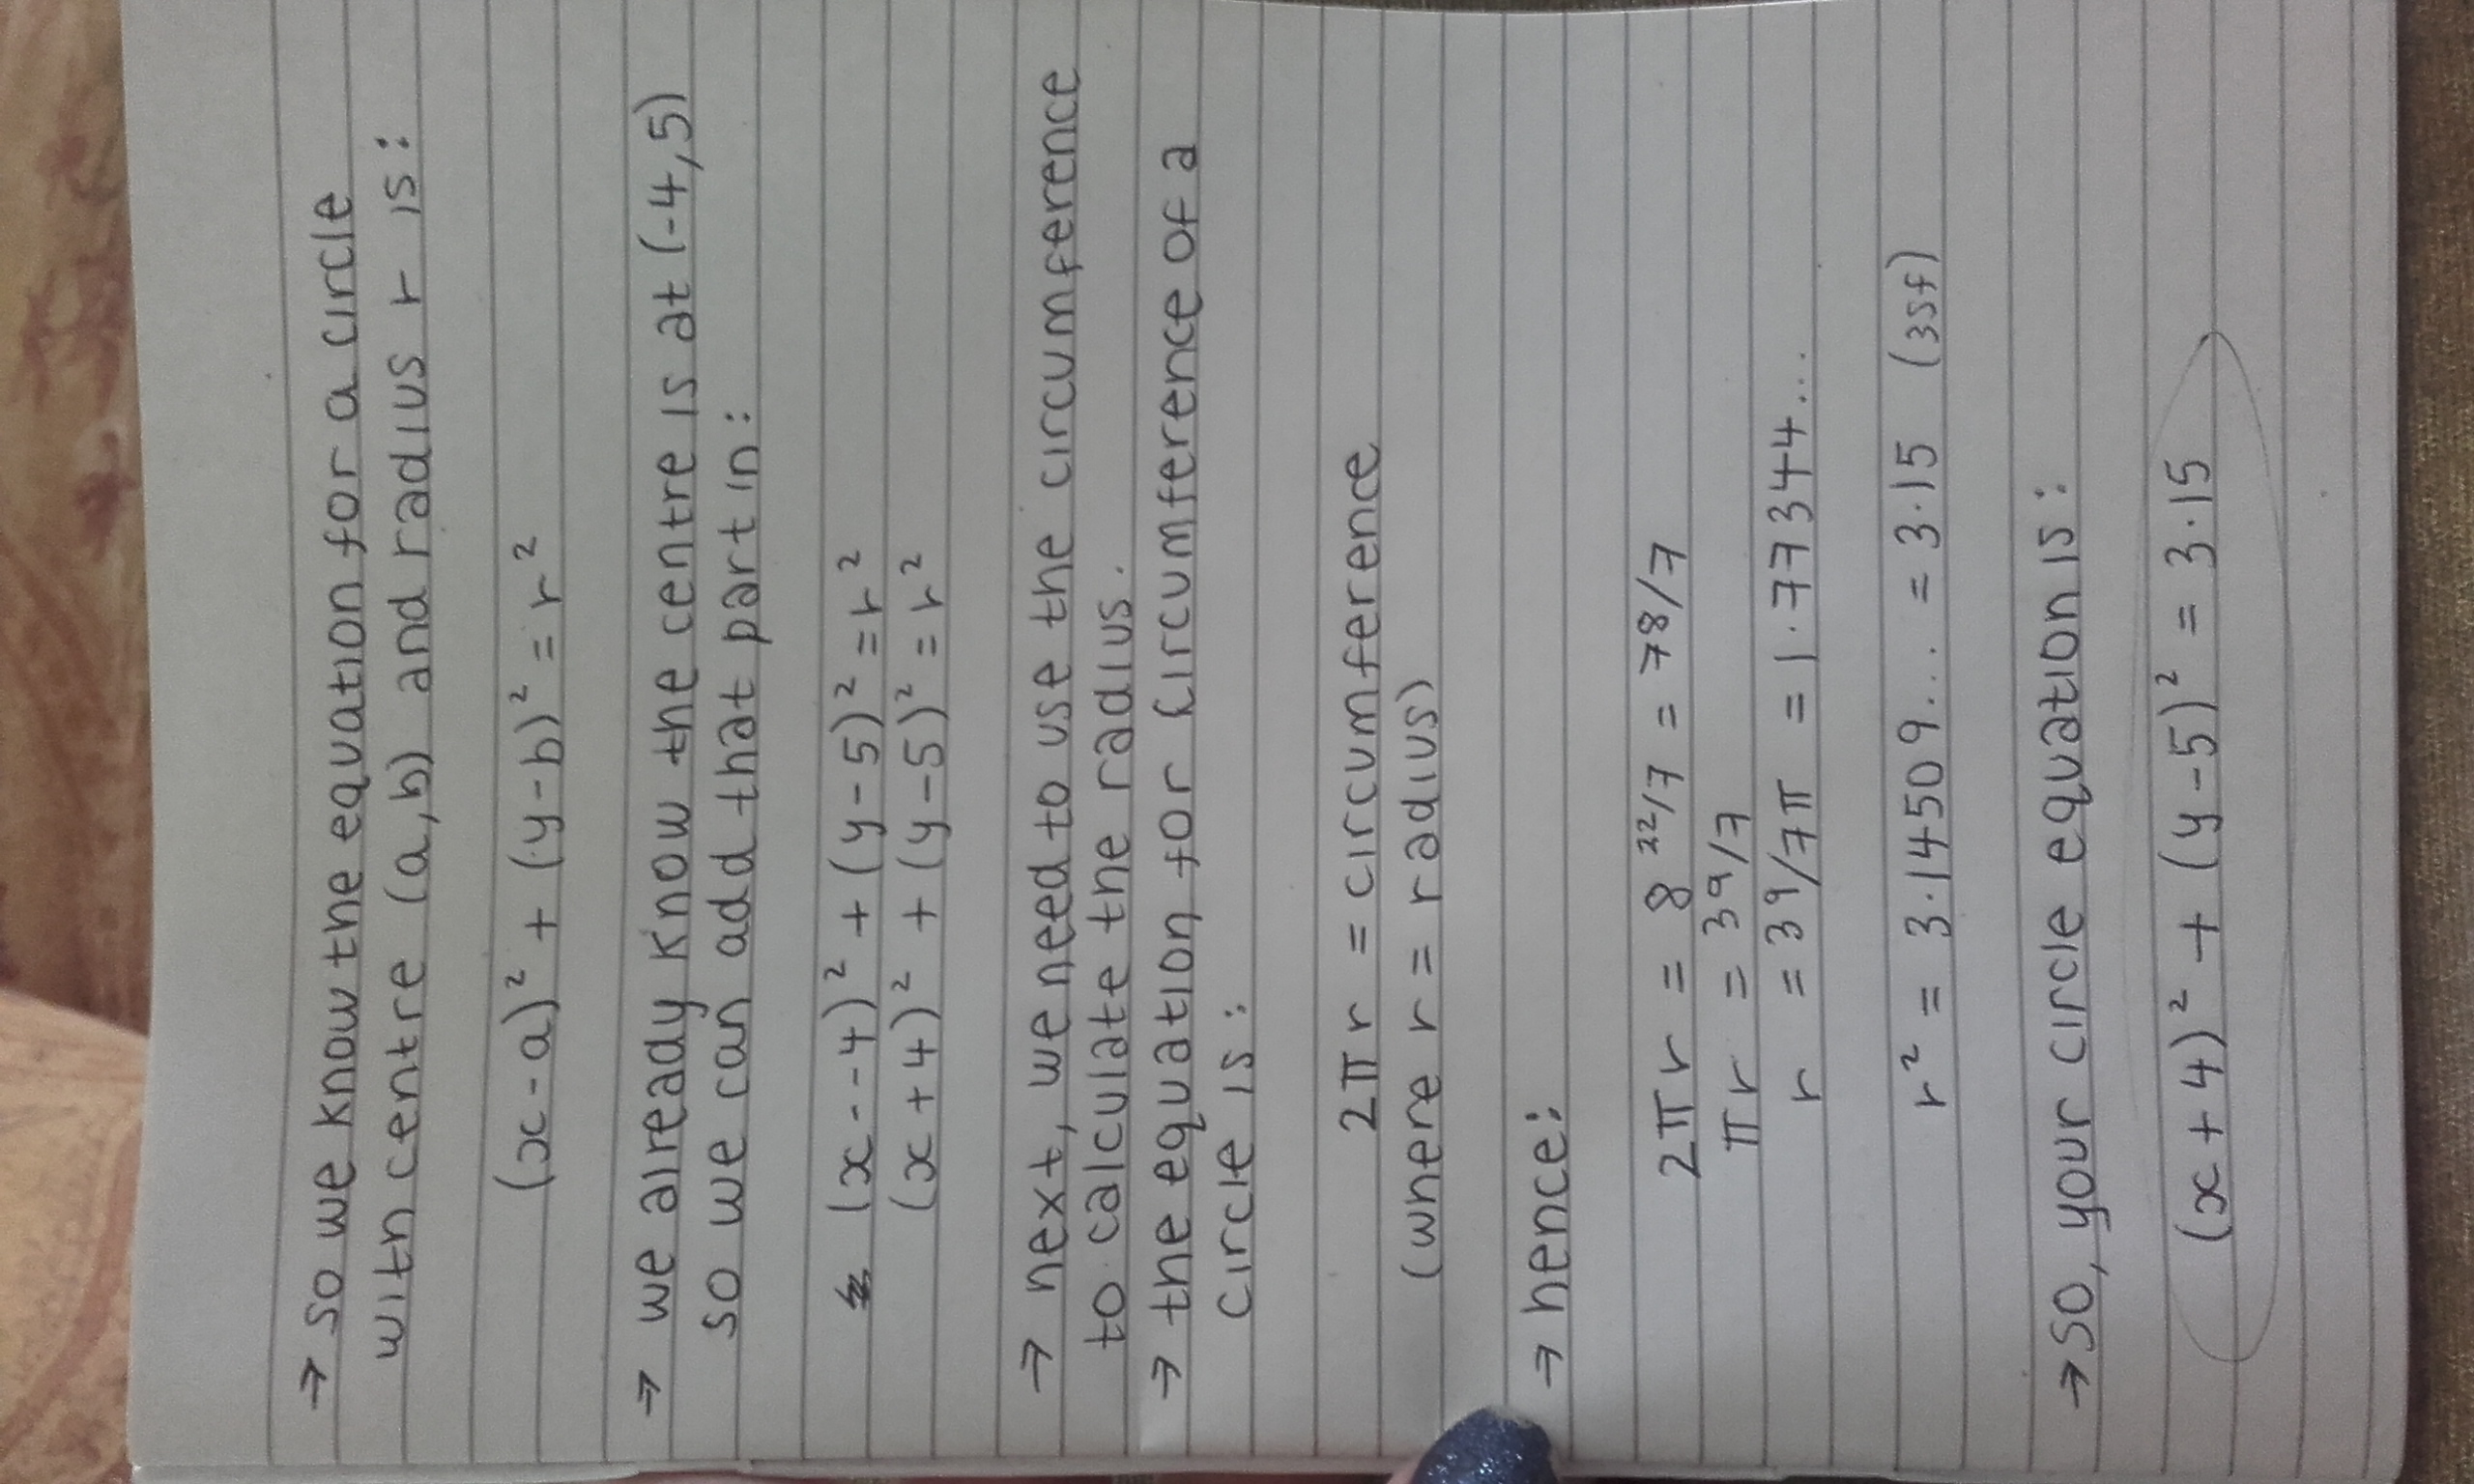 → so we know the equation for a circle
with centre (a,b) and radius r is:
(x-a)² + (y-b)² = r²
→ we already know the centre is at (-4,5)
so we can add that part in:
(x--4)² + (y-5)² = r²
(x+4)² + (y-5)² = r²
→ next, we need to use the circumference
to calculate the radius.
→ the equation for circumference of a
circle is:
2πr = circumference
(where r = radius)
→ hence:
2πr = 8 22/7 = 78/7
πr = 39/7
r = 39/7π = 1.77344...
r² = 3.14509... = 3.15 (3sf)
→ so, your circle equation is:
(x+4)² + (y-5)² = 3.15